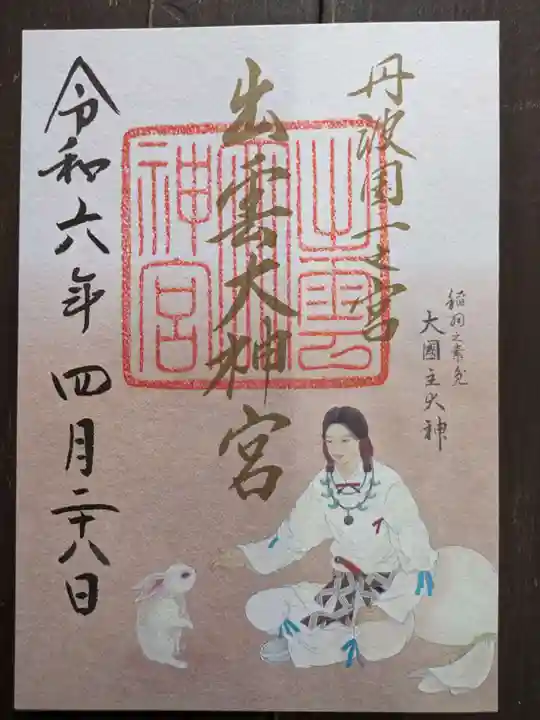 丹波国一之宮
出雲大神宮
令和六年 四月二十八日
稲羽之素兎
大國主大神
出雲大神宮